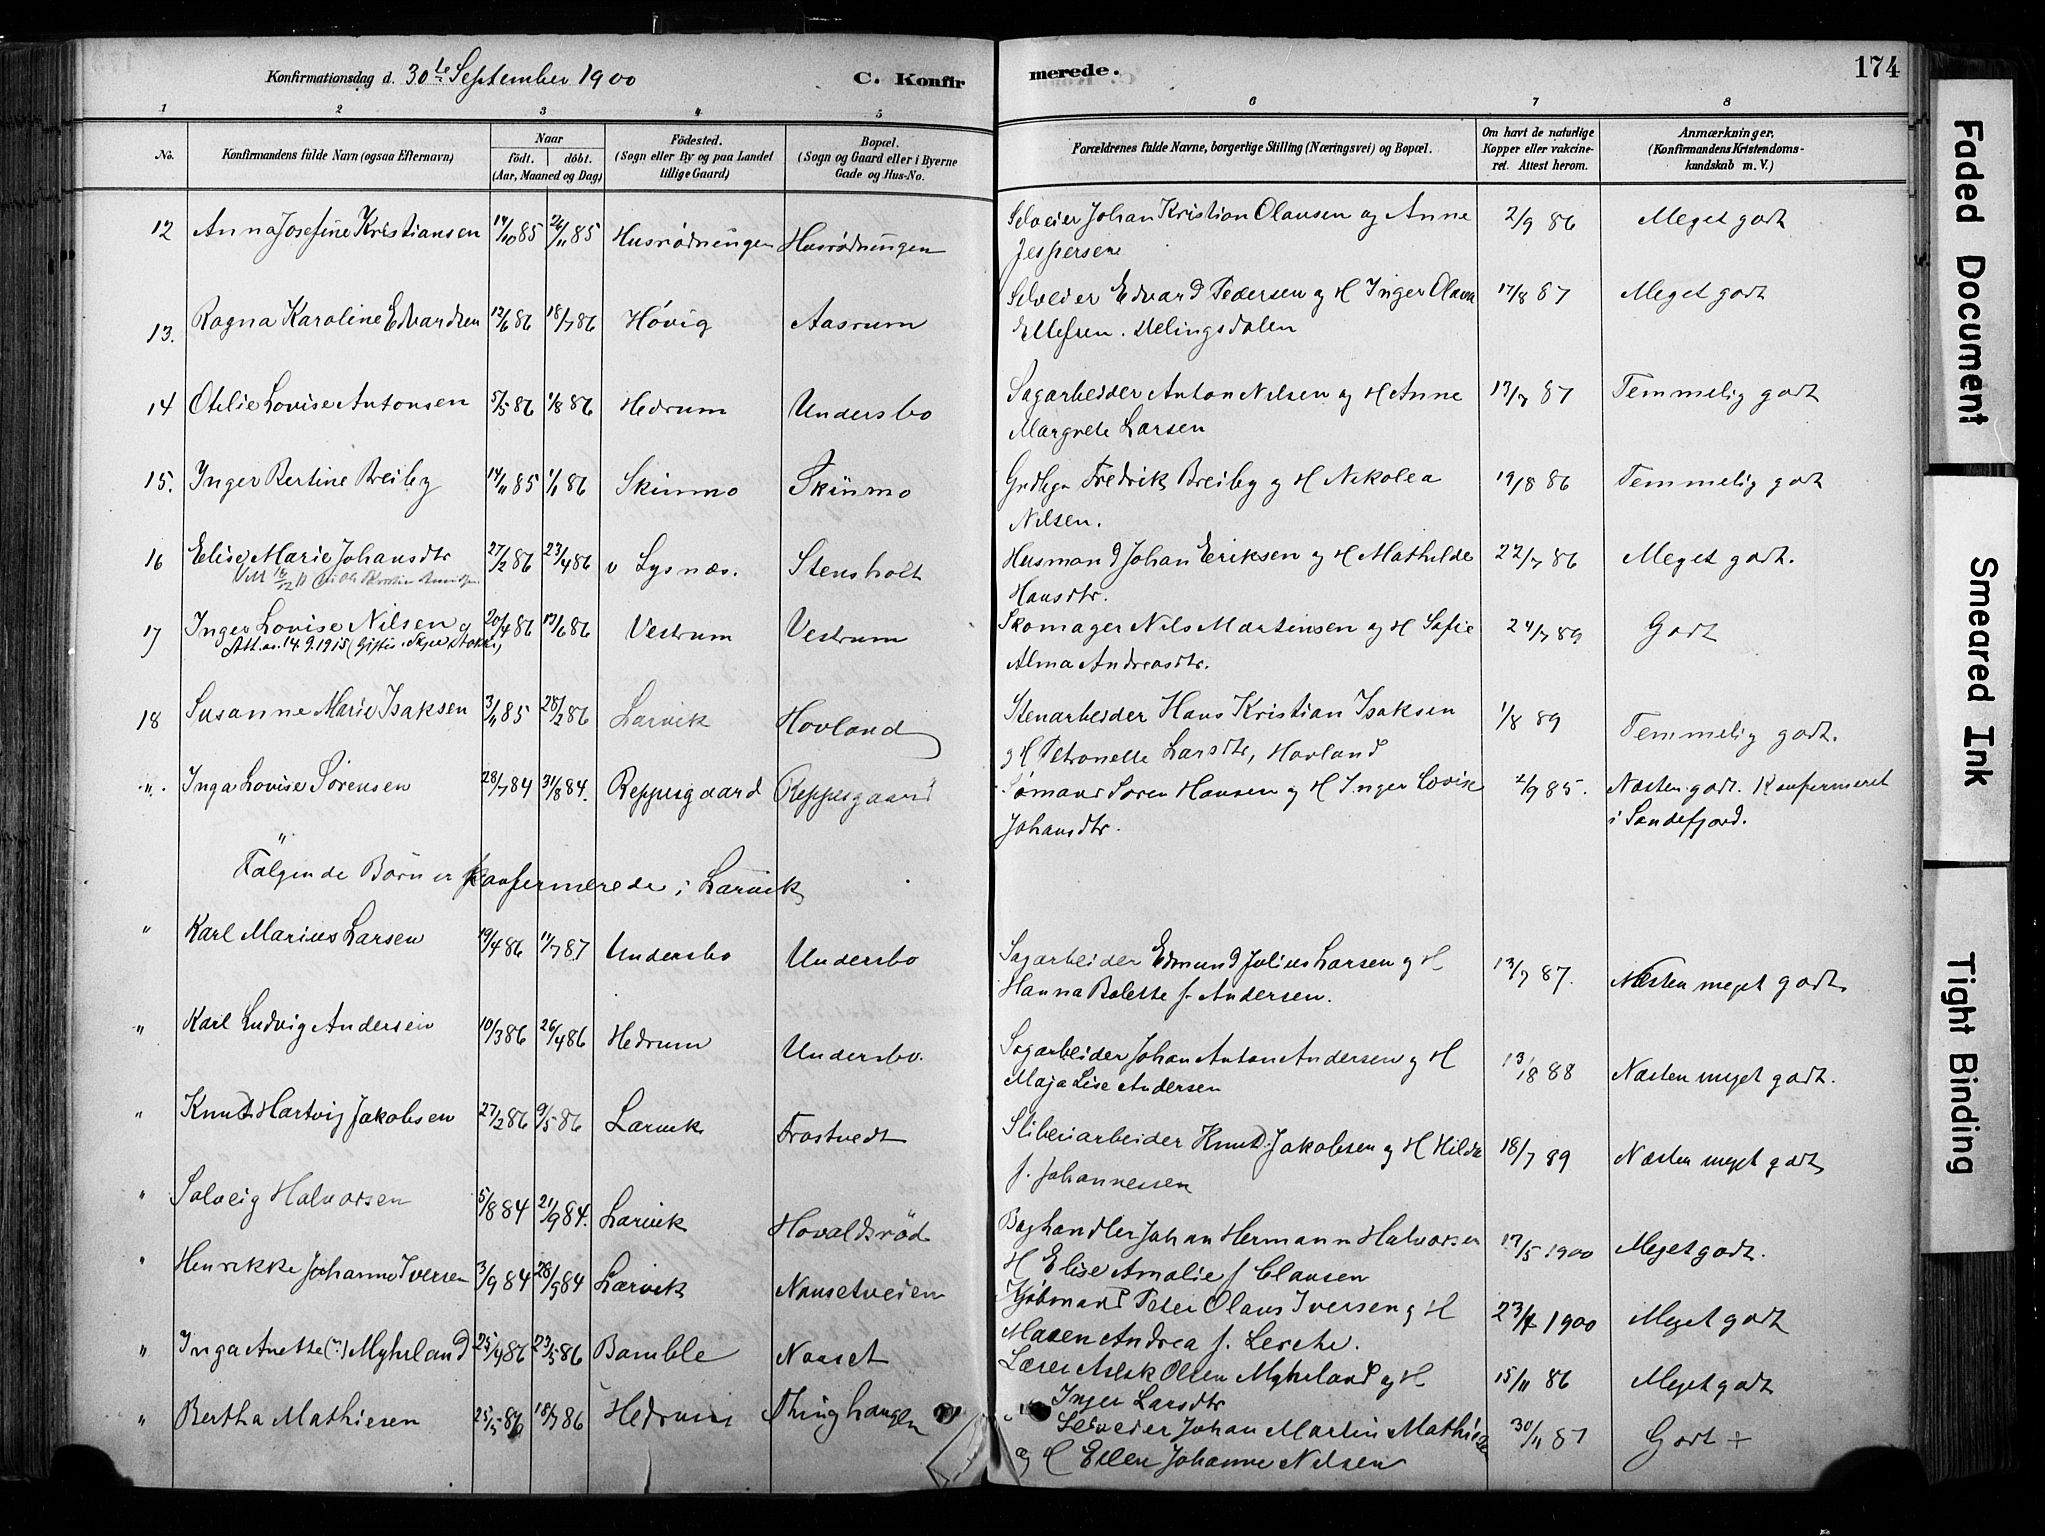 Konfirmationsdag d. 30te September 1900 C. Konfirmerede. 174
1 2 3 4 5 6 7 8
No. Konfirmandens fulde Navn (ogsaa Efternavn) Naar født. døbt. (Aar, Maaned og Dag) Fødested. (Sogn eller By og paa Landet tillige Gaard) Bopæl. (Sogn og Gaard eller i Byerne Gade og Hus-No. Forældrenes fulde Navne, borgerlige Stilling (Næringsvei) og Bopæl. Om havt de naturlige Kopper eller vakcineret. Attest herom. Anmærkninger. (Konfirmandens Kristendomskundskab m. V.)
12 Anna Josefine Kristiansen 14/10 85 26/11 85 Husrødningen Husrødningen Selveier Johan Kristian Olausen og Anne 2/9 86 Meget godt
Jespersen
13. Ragna Karoline Edvardsen 12/6 86 18/7 86 Høvig Aasrum Selveier Edvard Pedersen og H Inger Olava 17/8 87 Meget godt
Ellefsen. Melingsdalen
14 Otelie Lovise Antonsen 5/5 86 1/8 86 Hedrum Undersbo Sagarbeider Anton Nilsen og H Anne 13/7 87 Temmelig godt
Margrete Larsen
15. Inger Bertine Breiby 14/11 85 1/1 86 Skinmo Skinmo Grdbgr Fredrik Breiby og H Nikolea 19/8 86 Temmelig godt
Nilsen.
16 Elise Marie Johansdtr 27/2 86 23/4 86 v Lysnæs. Stensholt Husmand Johan Eriksen og H Mathilde 22/7 86 Meget godt.
Hansdtr.
17 Inger Lovise Nilsen 20/4 86 13/6 86 Vestrum Vestrum Skomager Nils Martinsen og H Sofie 24/7 89 Godt
Att. av. 14.9.1915 (Giftes i Skjee Stokke) Alma Andreasdtr.
18 Susanne Marie Isaksen 3/11 85 28/2 86 Larvik Hovland Stenarbeider Hans Kristian Isaksen 1/8 89 Temmelig godt.
og H Petronelle Larsdtr, Hovland
" Inga Lovise Sørensen 28/7 84 31/8 84. Reppesgaard Reppesgaard Sømand Søren Hansen og H Inger Lovise 2/9 85. Næsten godt. Konfirmeret
Johansdtr. i Sandefjord.
"
Følgende Børn er konfirmerede i Larvik
" Karl Marius Larsen 19/4 86 11/7 87 Undersbo Undersbo Sagarbeider Edmund Julius Larsen og H 13/7 87. Næsten meget godt
Hanna Bolette f. Andersen.
" Karl Ludvig Andersen 10/3 86 26/4 86 Hedrum Undersbo. Sagarbeider Johan Anton Andersen og H 13/8 88 Næsten meget godt.
Maja Lise Andersen
" Knut Hartvig Jakobsen 27/2 86 9/5 86 Larvik Frostvedt Sliberiarbeider Knut Jakobsen og H Hilda 18/7 89 Næsten meget godt
f. Johannessen
" Solveig Halvorsen 5/8 84 21/9 84. Larvik Hovaldsrød Boghandler Johan Hermann Halvorsen 17/5 1900 Meget godt.
H Elise Amalie f. Clausen
" Henrikke Johanne Iversen 3/9 84 28/9 84 Larvik Nansetveien Kjøbmand Peter Olaus Iversen og H 23/4 1900 Meget godt
Maren Andrea f. Lerche.
" Inga Anette Myhreland 25/4 86 23/5 86 Bamble Nanset Lærer Aslak Olsen Myhreland og H 15/11 86 Meget godt
Inger Larsdtr
" Bertha Mathiesen 25/5 86 18/7 86 Hedrum Thinghaugen Selveier Johan Martin Mathiesen 30/11 87 Godt +
og H Ellen Johanne Nilsen
Faded Document
Smeared Ink
Tight Binding